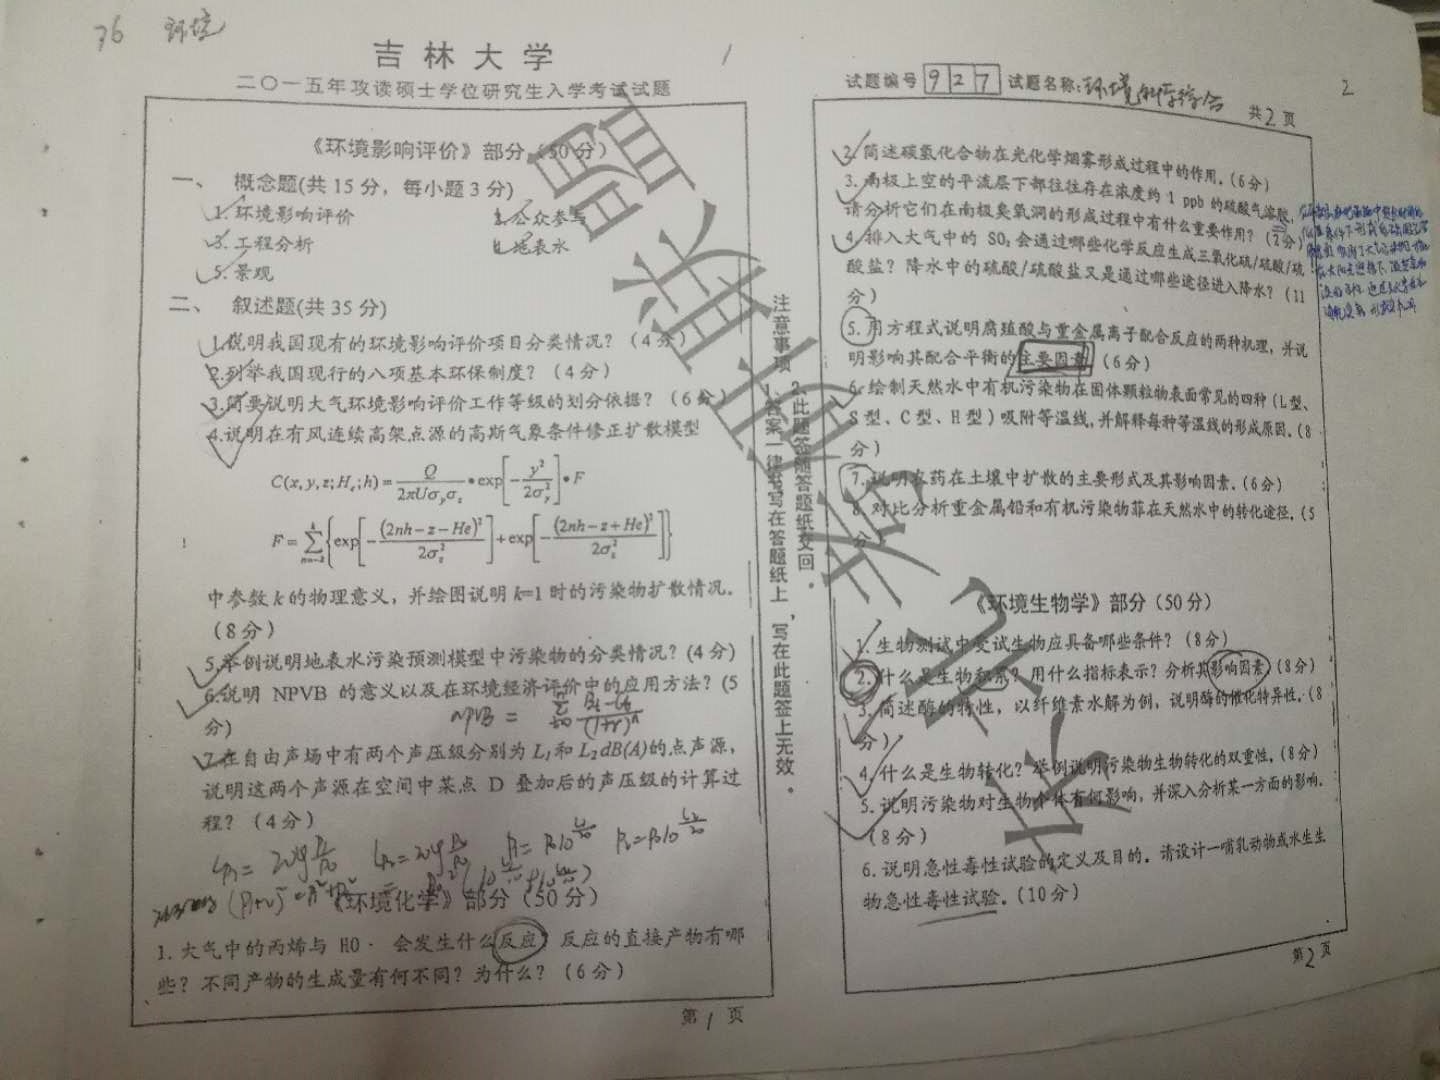 76 环境
吉林大学
二〇一五年攻读硕士学位研究生入学考试试题
1
《环境影响评价》部分（50分）
一、 概念题(共15分，每小题3分)
1.环境影响评价 2.公众参与
3.工程分析 4.地表水
5.景观
二、 叙述题(共35分)
1.说明我国现有的环境影响评价项目分类情况？（4分）
2.列举我国现行的八项基本环保制度？（4分）
3.简要说明大气环境影响评价工作等级的划分依据？（6分）
4.说明在有风连续高架点源的高斯气象条件修正扩散模型
C(x,y,z;He;h)=Q/2πUσyσz•exp[-y²/2σy²]•F
F=∑{exp[-(2nh-z-He)²/2σz²]+exp[-(2nh-z+He)²/2σz²]}
中参数k的物理意义，并绘图说明k=1时的污染物扩散情况。
（8分）
5.举例说明地表水污染预测模型中污染物的分类情况？(4分)
6.说明 NPVB 的意义以及在环境经济评价中的应用方法？(5
分)
NPVB =
7.在自由声场中有两个声压级分别为L1和L2dB(A)的点声源，
说明这两个声源在空间中某点 D 叠加后的声压级的计算过
程？（4分）
《环境化学》部分（50分）
1.大气中的丙烯与 HO· 会发生什么反应？反应的直接产物有哪
些？不同产物的生成量有何不同？为什么？（6分）
第1页
注意事项
1.答案一律书写在答题纸上，写在此题签上无效。
2.此题签随答题纸交回。
试题编号 927 试题名称：环境科学综合
共2页
2
2.简述碳氢化合物在光化学烟雾形成过程中的作用。（6分）
3.南极上空的平流层下部往往存在浓度约 1 ppb 的硫酸气溶胶，
请分析它们在南极臭氧洞的形成过程中有什么重要作用？（2分）
4.排入大气中的 SO₂会通过哪些化学反应生成三氧化硫/硫酸/硫
酸盐？降水中的硫酸/硫酸盐又是通过哪些途径进入降水？（11
分）
5.用方程式说明腐殖酸与重金属离子配合反应的两种机理，并说
明影响其配合平衡的主要因素（6分）
6.绘制天然水中有机污染物在固体颗粒物表面常见的四种（L型、
S型、C型、H型）吸附等温线，并解释每种等温线的形成原因。（8
分）
7.说明农药在土壤中扩散的主要形式及其影响因素。（6分）
8.对比分析重金属铅和有机污染物菲在天然水中的转化途径。（5
分）
《环境生物学》部分（50分）
1.生物测试中受试生物应具备哪些条件？（8分）
2.什么是生物积累？用什么指标表示？分析其影响因素（8分）
3.简述酶的特性，以纤维素水解为例，说明酶的催化特异性。（8
分）
4.什么是生物转化？举例说明污染物生物转化的双重性。（8分）
5.说明污染物对生物个体有何影响，并深入分析某一方面的影响。
（8分）
6.说明急性毒性试验的定义及目的。请设计一哺乳动物或水生生
物急性毒性试验。（10分）
第2页